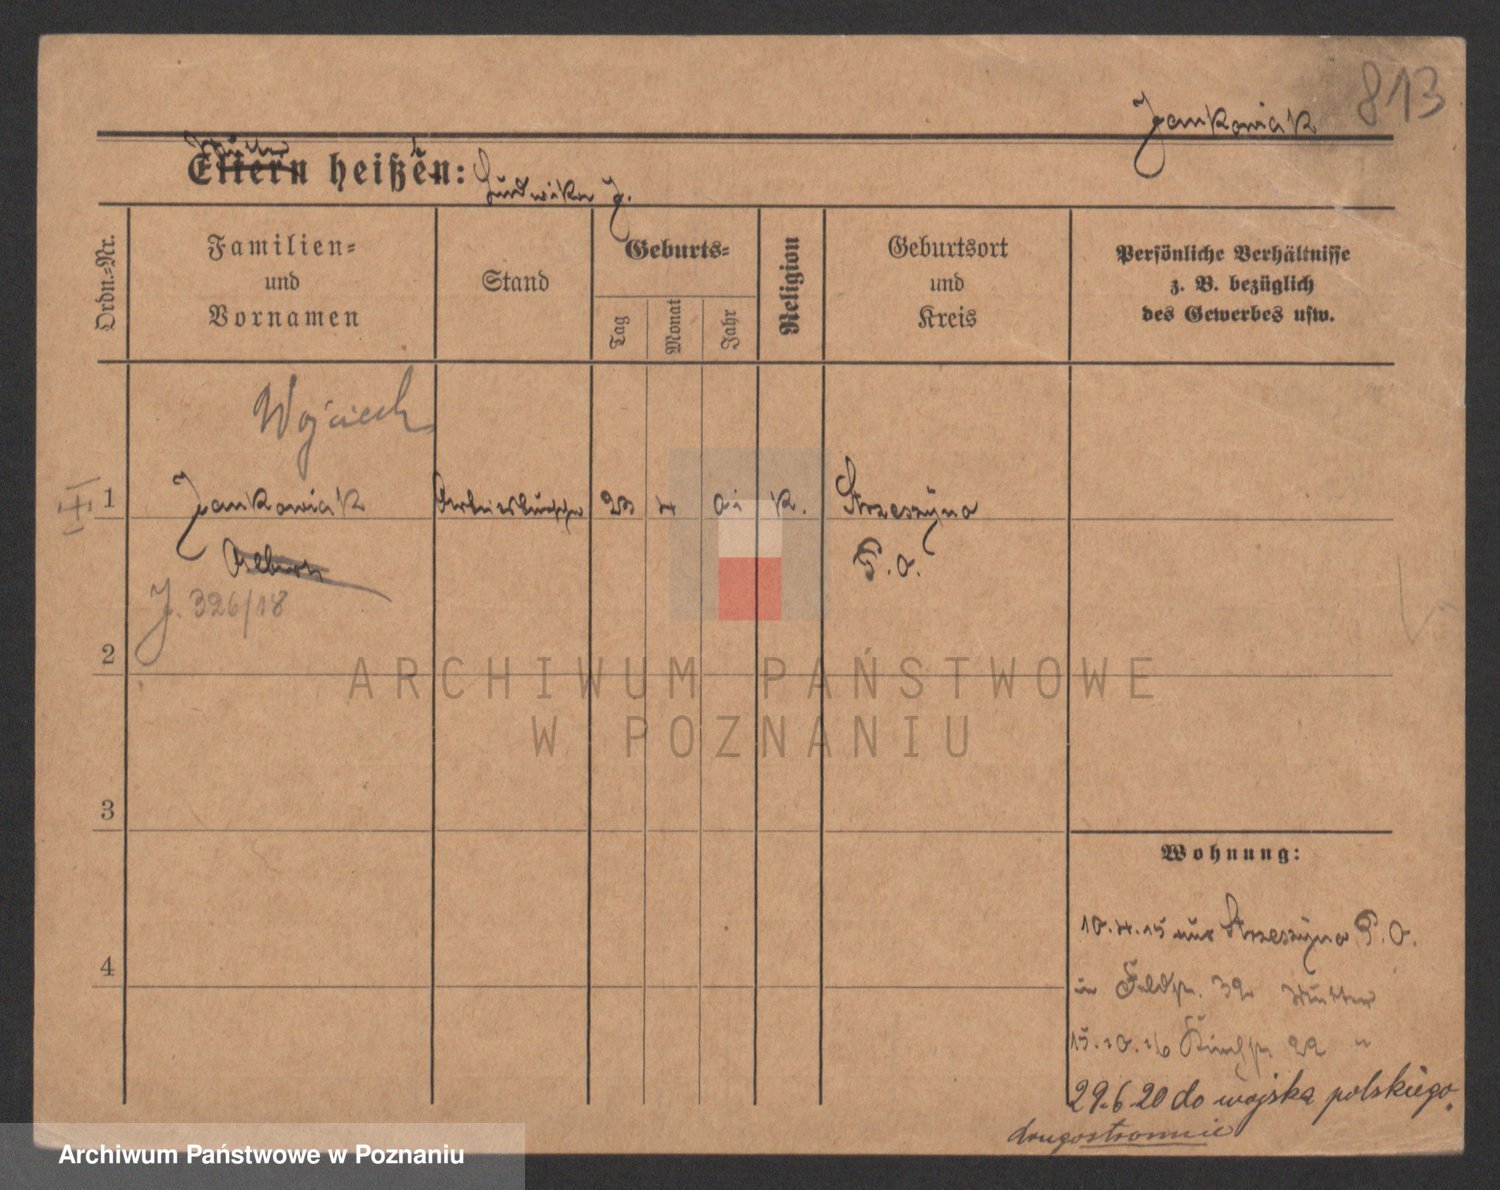 813
Jankowiak
Mutter
Eltern heißen: Ludwika J.
Ordn.-Nr.
Familien-
und
Vornamen
Stand
Geburts-
Tag
Monat
Jahr
Religion
Geburtsort
und
Kreis
Persönliche Verhältnisse
z. B. bezüglich
des Gewerbes usw.
Wojciech
1 Jankowiak Arbeitsbursche 23 4 01 k. Strzeszyna
P. O.
J. 326/18
2
3
Wohnung:
4
10.4.15 aus Strzeszyna P. O.
in Feldstr. 32 Mutter
15.10.16 22 "
29.6 20 do wojska polskiego.
drugostronnie
ARCHIWUM PAŃSTWOWE
W POZNANIU
Archiwum Państwowe w Poznaniu